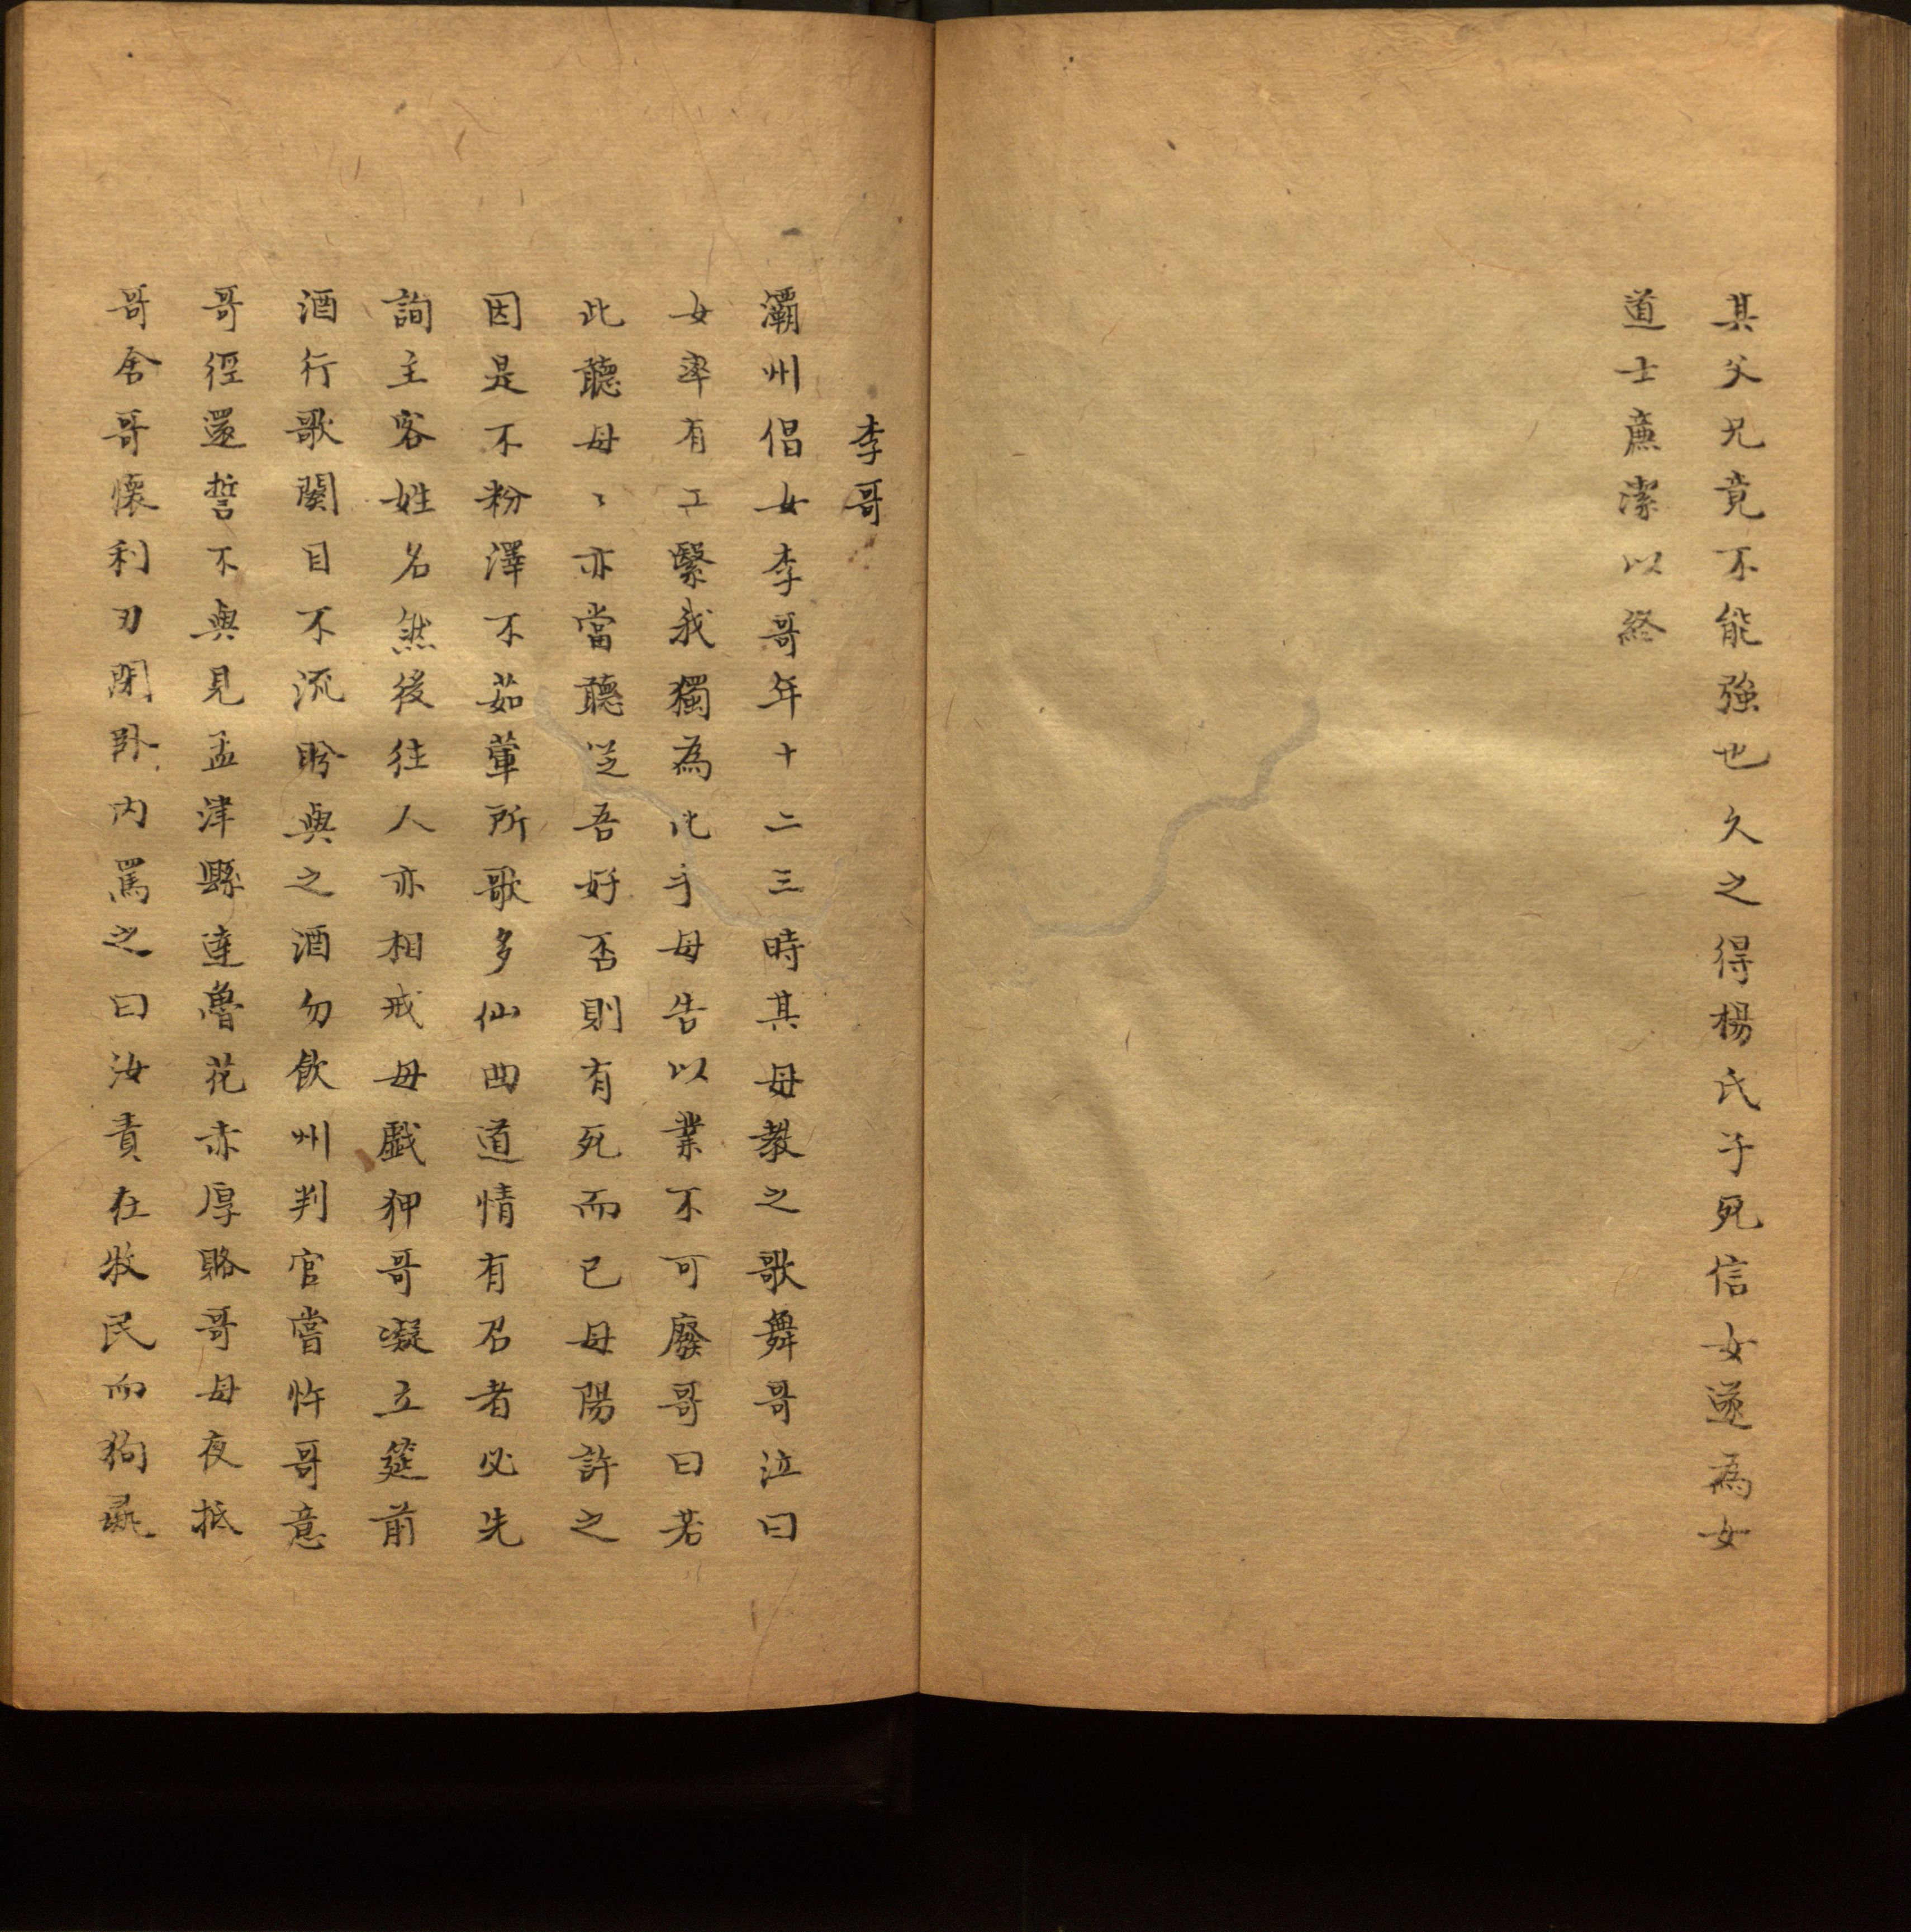 其父兄竟不能強也久之得楊氏子死信女遂為女
道士廉潔以終
李哥
灞州倡女李哥年十二三時其母教之歌舞哥泣曰
女率有工繄我獨為此乎母告以業不可廢哥曰若
此聽母〻亦當聽從吾好否則有死而已母陽許之
因是不粉澤不茹葷所歌多仙曲道情有召者必先
詢主客姓名然後往人亦相戒毋戲狎哥凝立筵前
酒行歌闋目不流盼與之酒勿飲州判官嘗忤哥意
哥徑還誓不與見孟津縣達魯花赤厚賂哥母夜抵
哥舍哥懷利刃閉卧內罵之曰汝責在牧民而狗彘